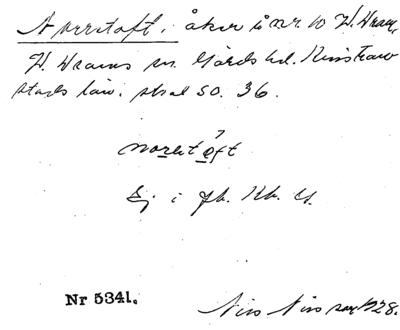 Norretoft, åker å nr 10 V. Vram,
V. Vrams sn. Gärds hd. Kristian
stads län. skal 50. 36.
norretoft
Ej i jb. Kb. U.
Nr 5341.
Nils Nilsson 1928.